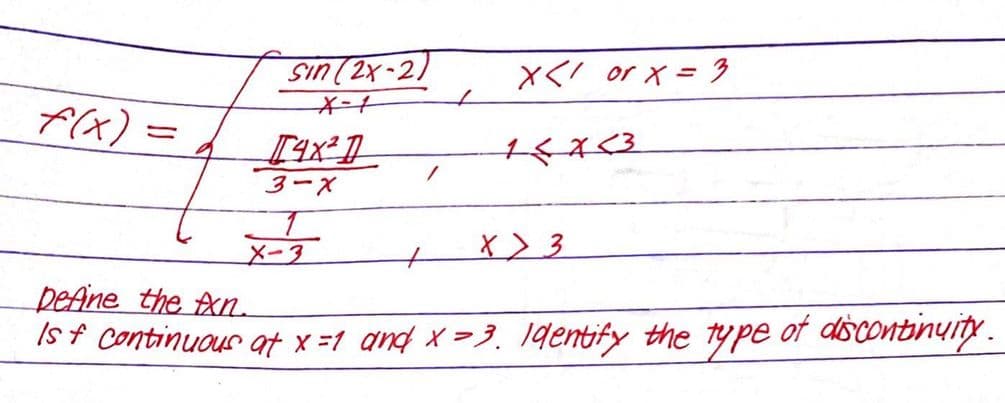 f(x) = { sin(2x-2) / x-1 , x<1 or x = 3
⟦4x²⟧ / 3-x , 1 ≤ x<3
1 / x-3 , x > 3
Define the fxn.
Is f continuous at x=1 and x=3. Identify the type of discontinuity.